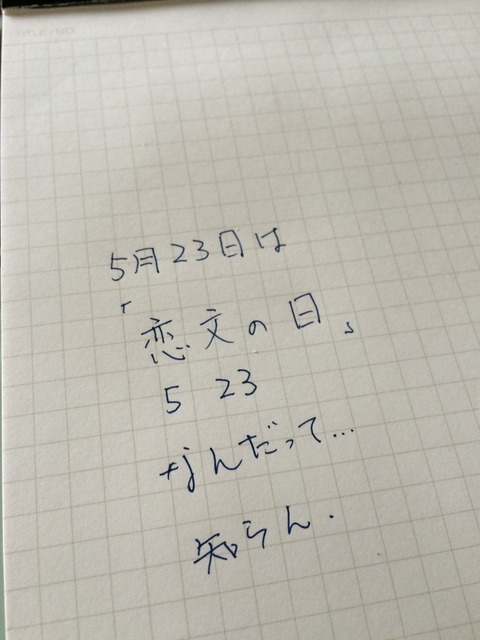 TITLE/NO
5月23日は
「恋文の日」
5 23
なんだって…
知らん.